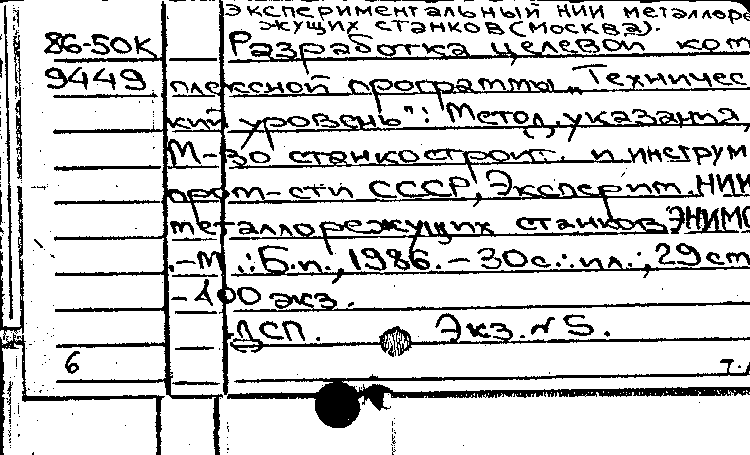 Экспериментальный НИИ металлоре
жущих станков (Москва).
86-50К Разработка целевой ком
9449 плексной программы „Техничес
кий уровень": Метод. указания,
М-во станкостроит. и инструм
пром-сти СССР, Эксперим. НИИ
металлорежущих станков ЭНИМС
.-М.: Б.и., 1986. - 30с.: ил.; 29см
-100 экз.
ДСП. Экз. N 5.
6